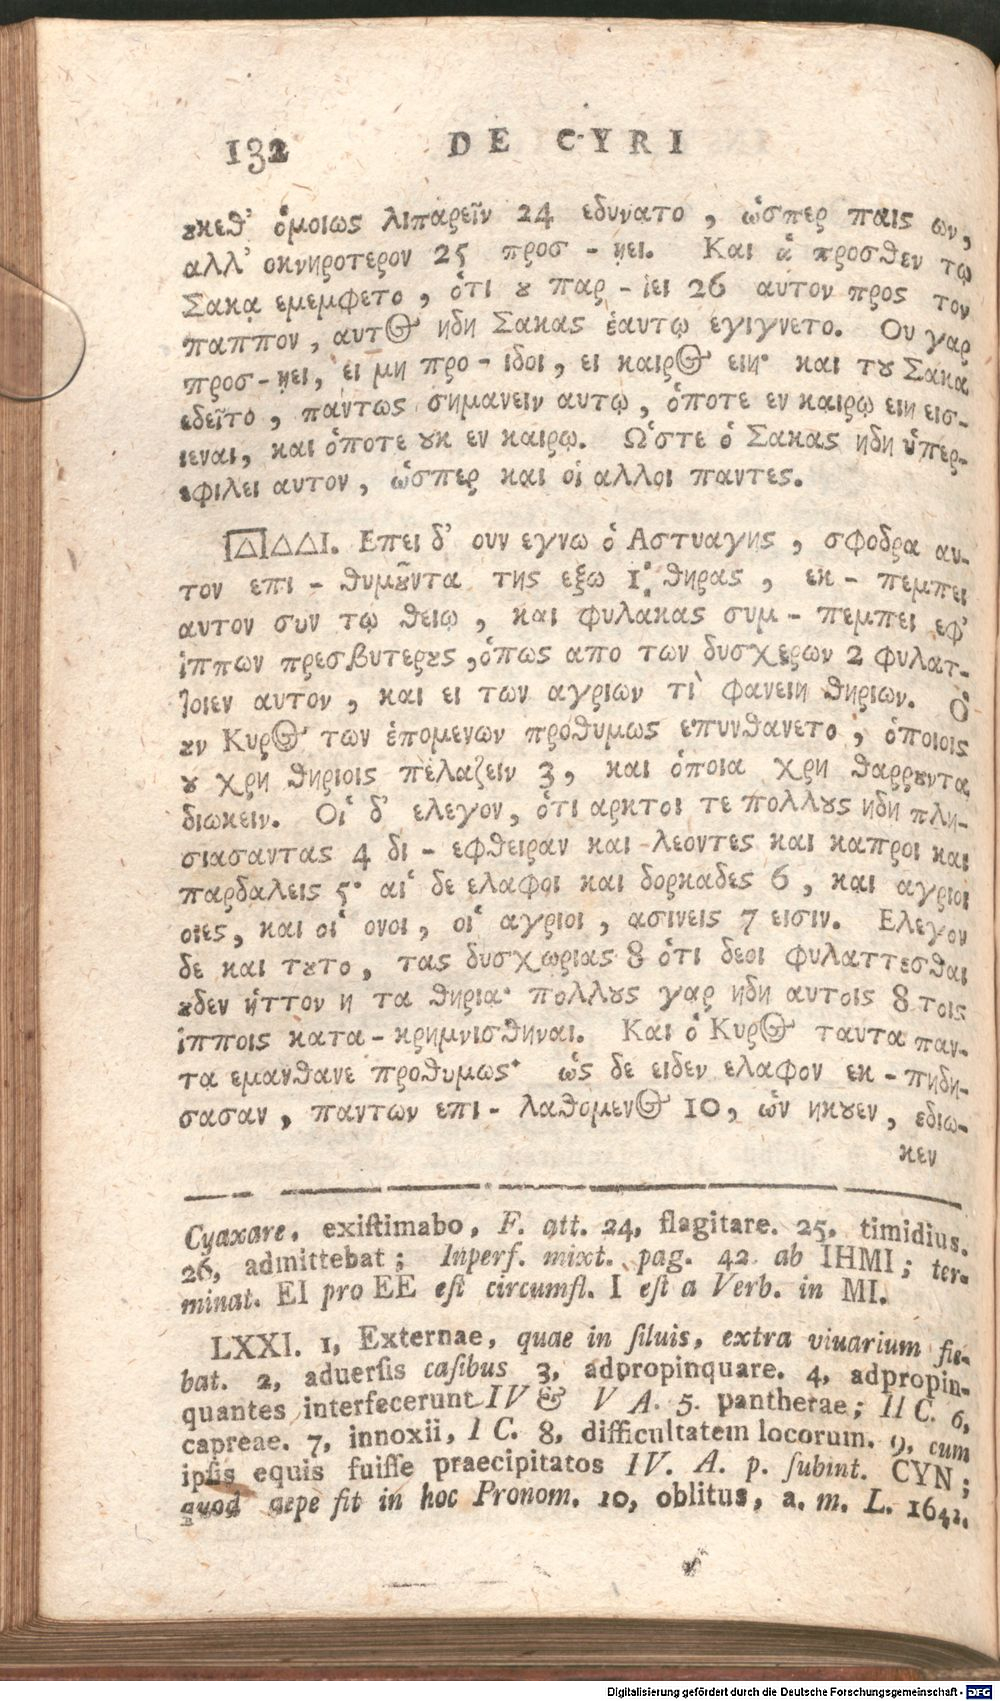 132 DE CYRI
ȣκεθ' ὁμοιως λιπαρεῖν 24 εδυνατο, ὡσπερ παις ων,
αλλ' οκνηροτερον 25 προσ - ῃει. Και ἁ προσθεν τῳ
Σακᾳ εμεμφετο, ὁτι ȣ παρ - ίει 26 αυτον προς τον
παππον, αυτος ηδη Σακας ἑαυτῳ εγιγνετο. Ου γαρ
προσ-ῃει, ει μη προ - ιδοι, ει καιρος ειη· και τȣ Σακα
εδεῖτο, παντως σημανειν αυτῳ, ὁποτε εν καιρῳ ειη εισ-
ιεναι, και ὁποτε ȣκ εν καιρῳ. Ὡστε ὁ Σακας ηδη ὑπερ-
εφιλει αυτον, ὡσπερ και οἱ αλλοι παντες.
𐅄ΔΔΙ. Επει δ' ουν εγνω ὁ Αστυαγης, σφοδρα αυ-
τον επι - θυμȣ͂ντα της εξω 1· θηρας, εκ - πεμπει
αυτον συν τῳ θειῳ, και φυλακας συμ - πεμπει εφ'
ἱππων πρεσβυτερȣς, ὁπως απο των δυσχερων 2 φυλατ-
τοιεν αυτον, και ει των αγριων τὶ φανειη θηριων. Ὁ
ȣν Κυρος των ἑπομενων προθυμως επυνθανετο, ὁποιοις
ȣ χρη θηριοις πελαζειν 3, και ὁποια χρη θαρρȣντα
διωκειν. Οἱ δ' ελεγον, ὁτι αρκτοι τε πολλȣς ηδη πλη-
σιασαντας 4 δι - εφθειραν και λεοντες και καπροι και
παρδαλεις 5· αἱ δε ελαφοι και δορκαδες 6, και αγριοι
οιες, και οἱ ονοι, οἱ αγριοι, ασινεις 7 εισιν. Ελεγον
δε και τȣτο, τας δυσχωριας 8 ὁτι δεοι φυλαττεσθαι
ȣδεν ἡττον η τα θηρια· πολλȣς γαρ ηδη αυτοις 8 τοις
ἱπποις κατα - κρημνισθηναι. Και ὁ Κυρος ταυτα παν-
τα εμανθανε προθυμως· ὡς δε ειδεν ελαφον εκ - πηδη-
σασαν, παντων επι - λαθομενος 10, ὡν ηκȣεν, εδιω-
κεν
Cyaxare, exiſtimabo, F. att. 24, flagitare. 25, timidius.
26, admittebat; Inperf. mixt. pag. 42 ab IHMI; ter-
minat. EI pro EE eſt circumfl. I eſt a Verb. in MI.
LXXI. 1, Externae, quae in ſiluis, extra viuarium fie-
bat. 2, aduerſis caſibus 3, adpropinquare. 4, adpropin-
quantes interfecerunt IV & V A. 5. pantherae; II C. 6,
capreae. 7, innoxii, I C. 8, difficultatem locorum. 9, cum
ipſis equis fuiſſe praecipitatos IV. A. p. ſubint. CYN;
quod aepe fit in hoc Pronom. 10, oblitus, a. m. L. 1642.
Digitalisierung gefördert durch die Deutsche Forschungsgemeinschaft - DFG